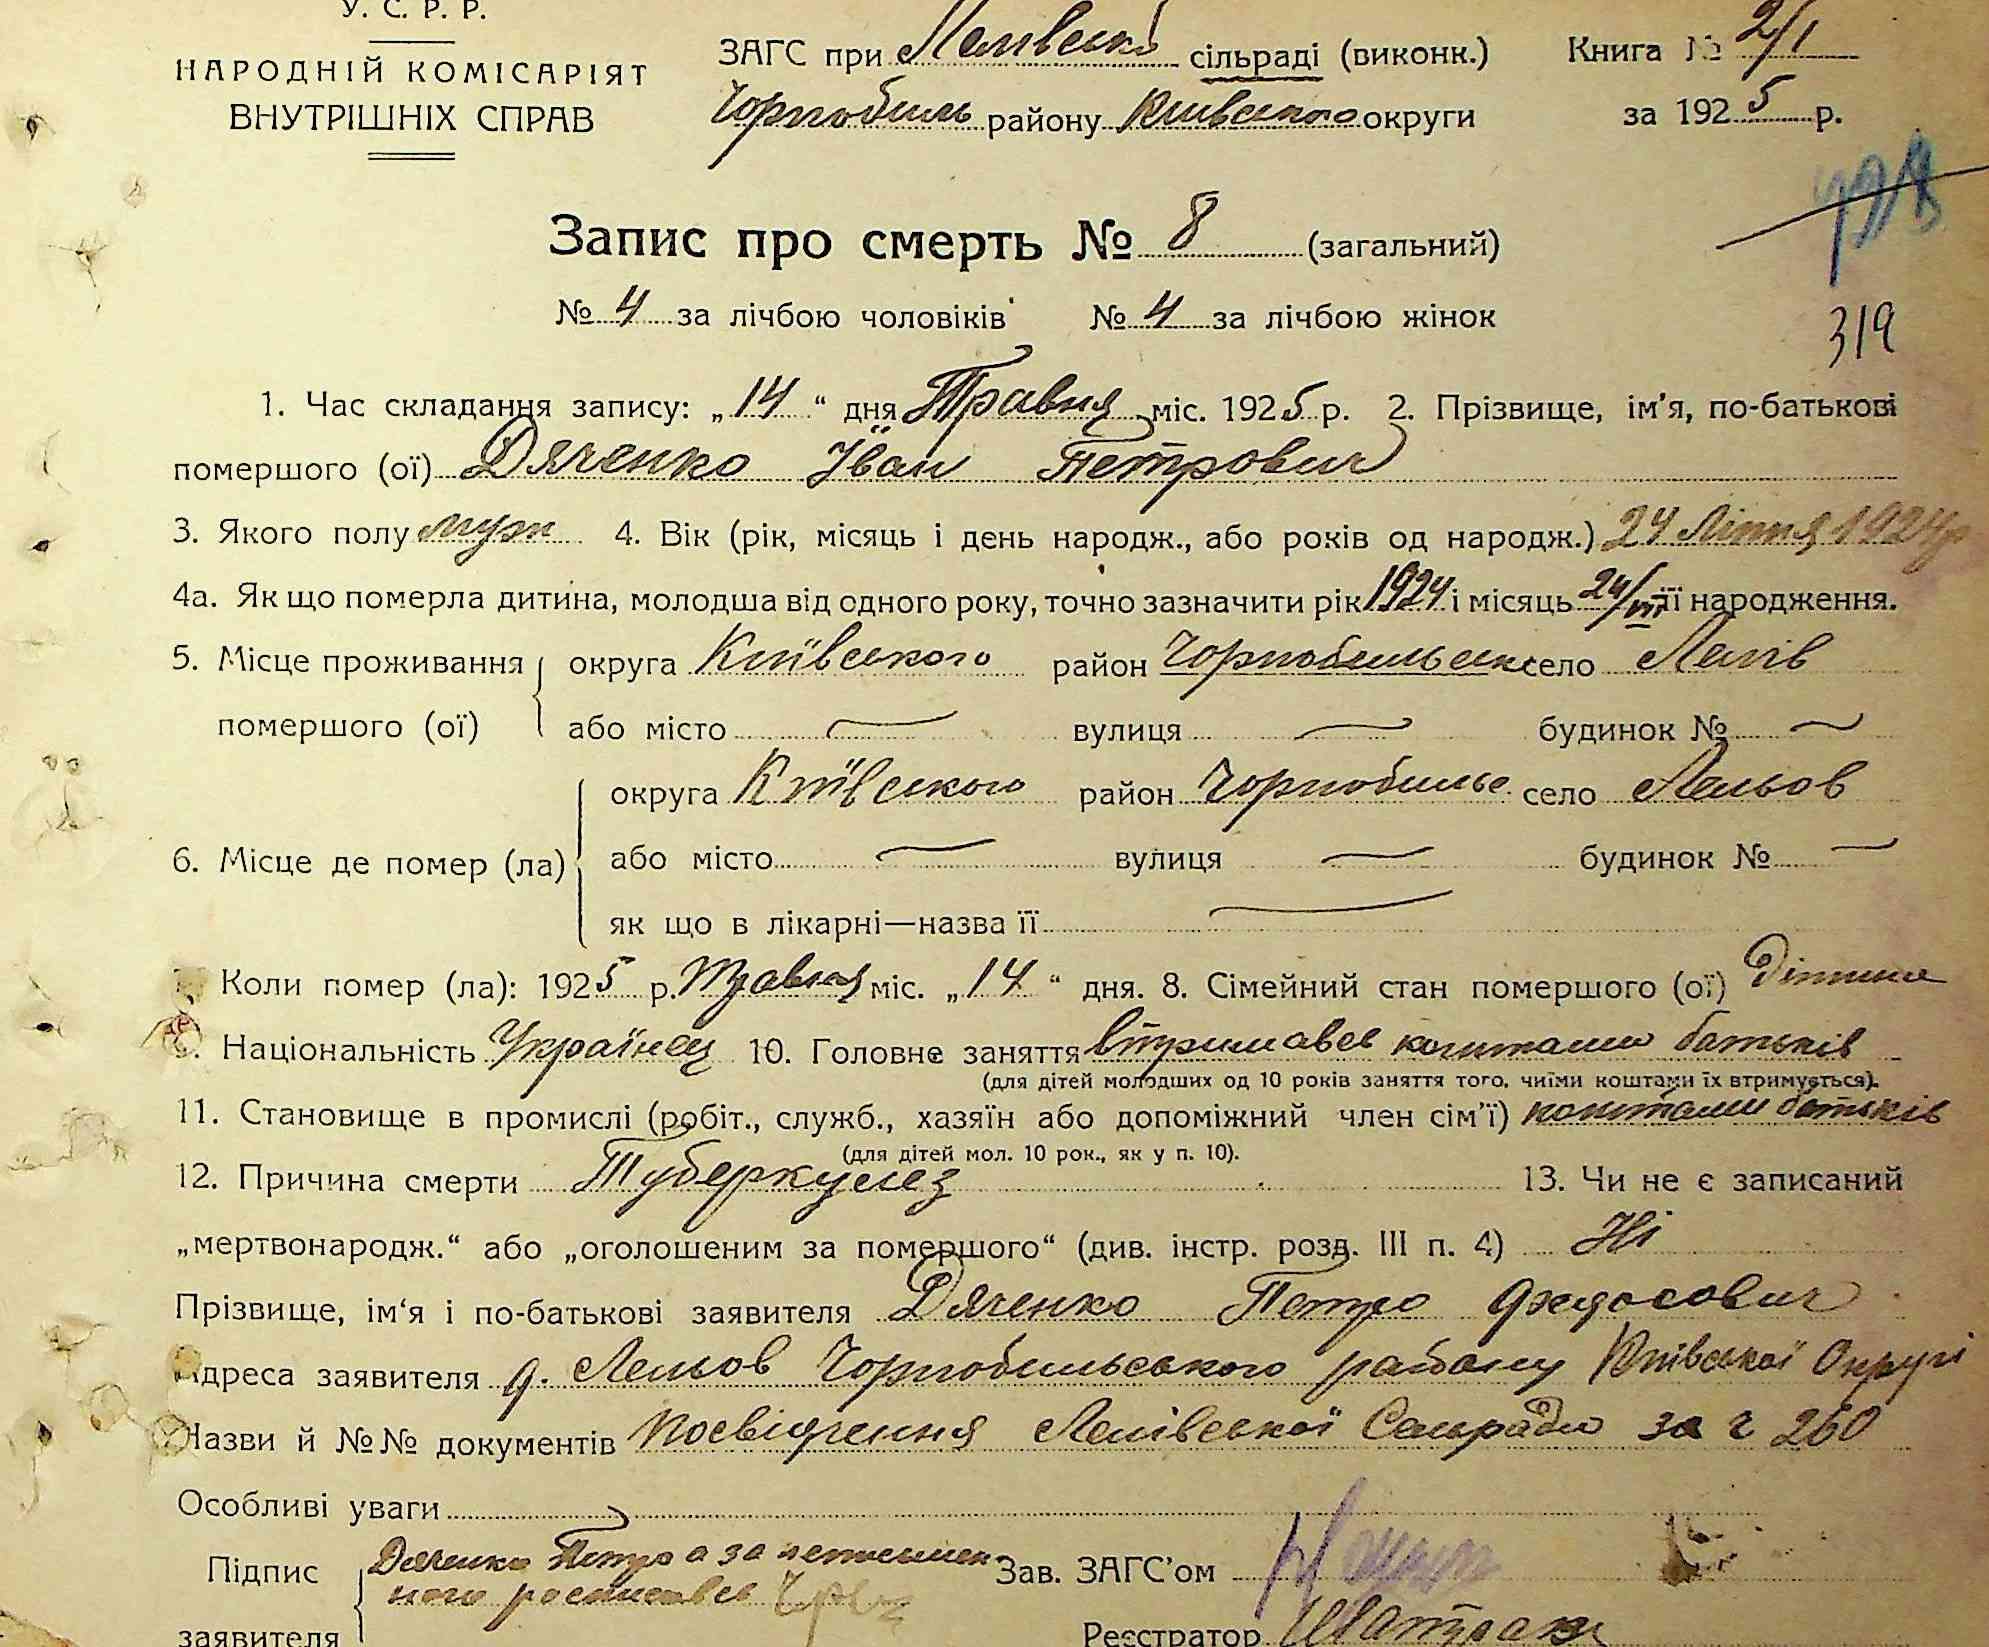 У. С. Р. Р.
НАРОДНІЙ КОМІСАРІЯТ
ВНУТРІШНІХ СПРАВ
ЗАГС при Лелівські сільраді (виконк.)
Чорнобиль району Київського округи
Книга № 2/1
за 1925 р.
Запис про смерть № 8 (загальний)
319
№ 4 за лічбою чоловіків № 4 за лічбою жінок
1. Час складання запису: „14“ дня Травня міс. 1925 р. 2. Прізвище, ім'я, по-батькові
помершого (ої) Дяченко Іван Петрович
3. Якого полу муж 4. Вік (рік, місяць і день народж., або років од народж.) 24 Ліпня 1924 р
4а. Як що померла дитина, молодша від одного року, точно зазначити рік 1924 і місяць 24/VII її народження.
5. Місце проживання помершого (ої)
округа Київського район Чорнобильськ село Лелів
або місто вулиця будинок №
6. Місце де помер (ла)
округа Київського район Чорнобильс село Лельов
або місто вулиця будинок №
як що в лікарні—назва її
Коли помер (ла): 1925 р. Травня міс. „14“ дня. 8. Сімейний стан помершого (ої) Дітина
9. Національність Українец 10. Головне заняття втримавсь коштами батьків
(для дітей молодших од 10 років заняття того, чиїми коштами їх втримується).
11. Становище в промислі (робіт., служб., хазяїн або допоміжний член сім'ї) коштами батьків
(для дітей мол. 10 рок., як у п. 10).
12. Причина смерти Туберкулез 13. Чи не є записаний
„мертвонародж.“ або „оголошеним за помершого“ (див. інстр. розд. III п. 4) Ні
Прізвище, ім'я і по-батькові заявителя Дяченко Петро Федосович
Адреса заявителя д. Лельов Чорнобильського району Київської Округі
Назви й №№ документів Посвідчення Лелівської Сельради за № 260
Особливі уваги
Підпис заявителя Дяченко Петро а за неписьмен
ного росписавсь
Зав. ЗАГС'ом
Реєстратор